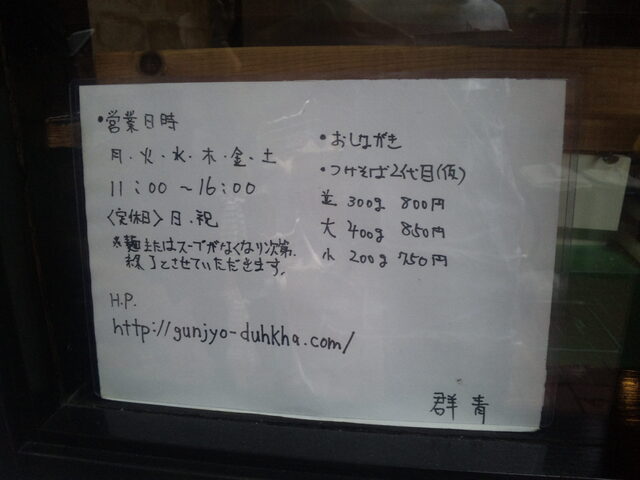 ・営業日時
月・火・水・木・金・土
11:00～16:00
〈定休日〉日・祝
※麺またはスープがなくなり次第、
終了とさせていただきます。
H.P.
http://gunjyo-duhkha.com/
・おしながき
・つけそば2代目(仮)
並 300g 800円
大 400g 850円
小 200g 750円
群青